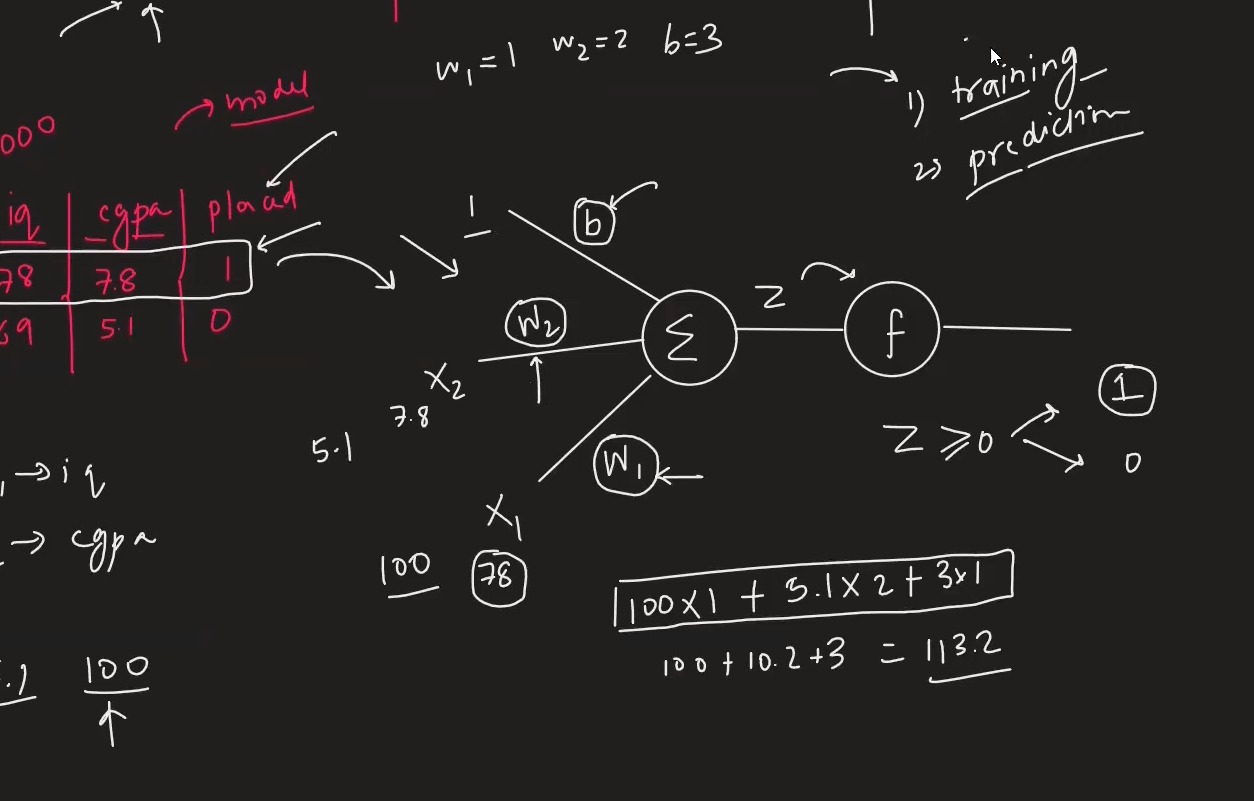 w₁=1 w₂=2 b=3
1) training
2) prediction
model
000
iq cgpa placed
78 7.8 1
69 5.1 0
1
b
w₂
x₂
7.8
5.1
w₁
x₁
100 78
Σ
z
f
z ≥ 0
1
0
→ iq
→ cgpa
100
100×1 + 5.1×2 + 3×1
100 + 10.2 + 3 = 113.2